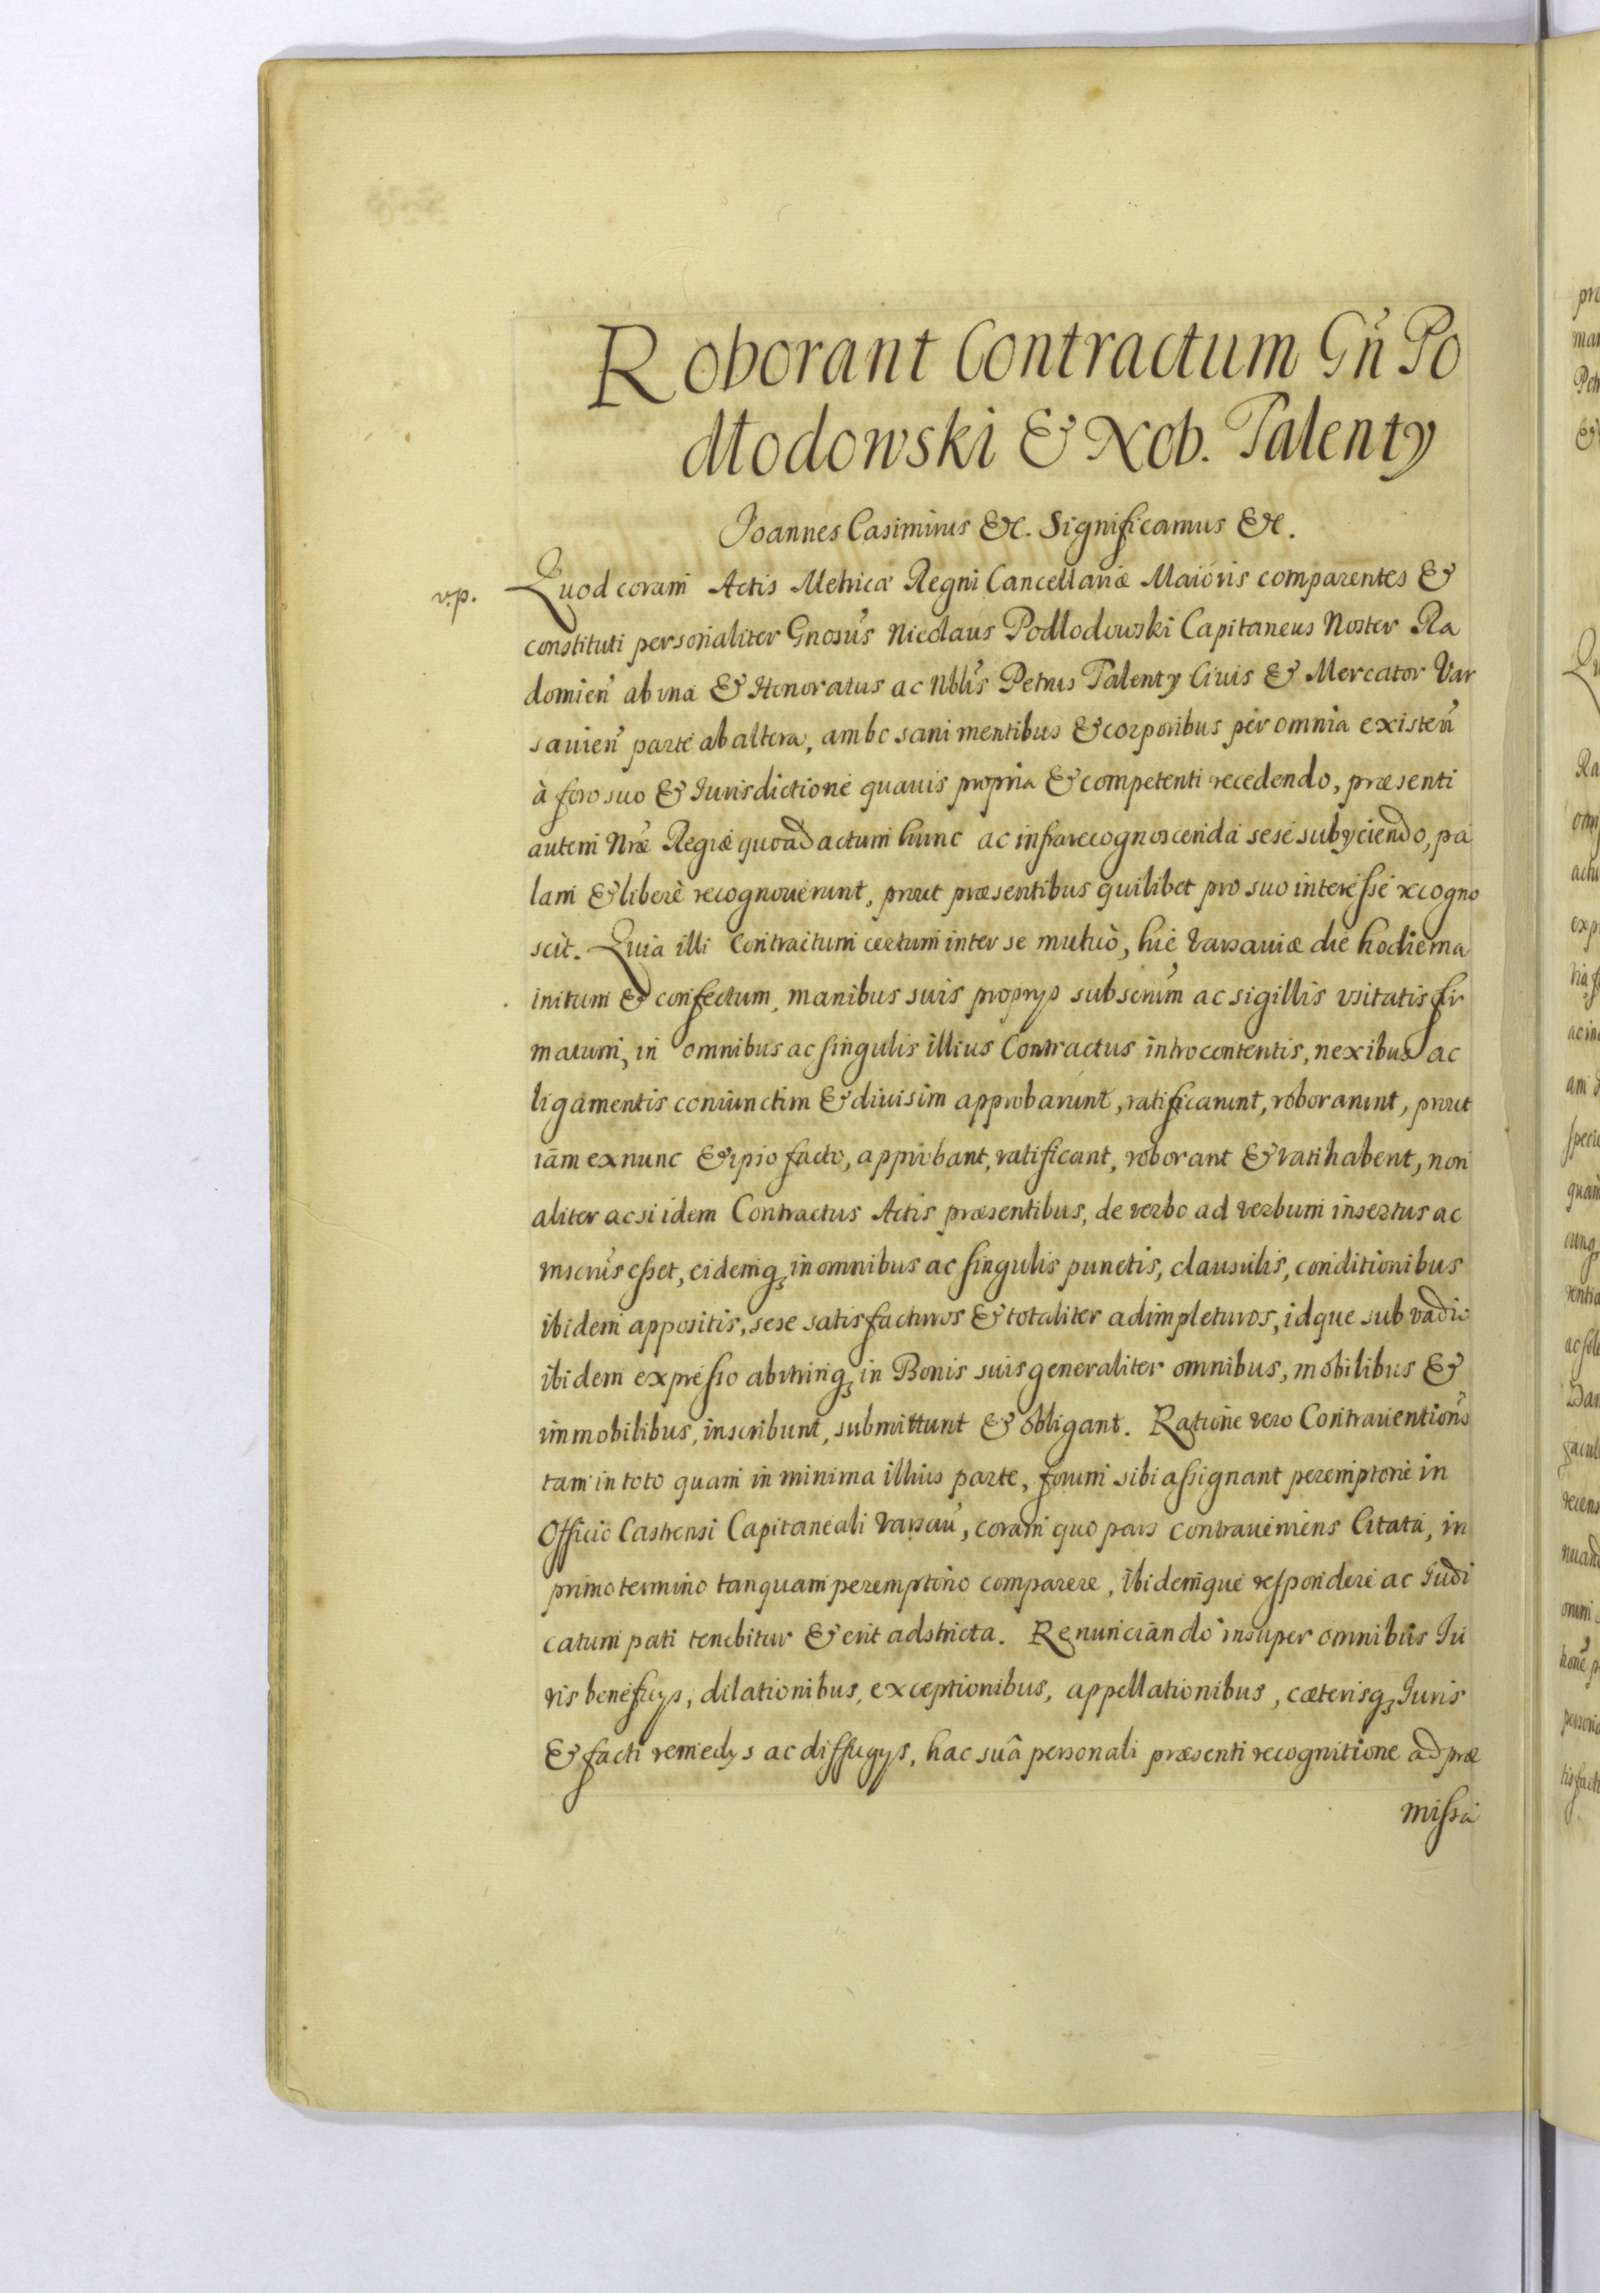 Roborant Contractum Gn̄ Po
dlodowski & Nob. Talenty
Joannes Casimirus &c. Significamus &c.
v.p.
Quod coram Actis Metricæ Regni Cancellariæ Maioris comparentes &
constituti personaliter Gnosus Nicolaus Podlodowski Capitaneus Noster Ra
domien̄ ab vna & Honoratus ac Nblis Petrus Talenty Ciuis & Mercator Var
sauien̄ parte ab altera, ambo sani mentibus & corporibus per omnia existen̄
à foro suo & Iurisdictione quauis propria & competenti recedendo, præsenti
autem Nræ Regiæ quoad actum hunc ac infrarecognoscenda sese subyciendo, pa
lam & liberè recognouerunt, prout præsentibus quilibet pro suo interesse recogno
scit. Quia illi Contractum certum inter se mutuò, hic Varsauiæ die hodierna
initum & confectum, manibus suis proprys subscrium ac sigillis vsitatis fir
matum, in omnibus ac singulis illius Contractus introcontentis, nexibus ac
ligamentis coniunctim & diuisim approbarunt, ratificarunt, roborarunt, prout
iam ex nunc & ipso facto, approbant, ratificant, roborant & ratihabent, non
aliter acsi idem Contractus Actis præsentibus, de verbo ad verbum insertus ac
inscrius esset, eidemq; in omnibus ac singulis punctis, clausulis, conditionibus
ibidem appositis, sese satisfacturos & totaliter adimpleturos, idque sub vadio
ibidem expresso ab vtrinq; in Bonis suis generaliter omnibus, mobilibus &
immobilibus, inscribunt, submittunt & obligant. Ratione vero Contrauentionis
tam in toto quam in minima illius parte, forum sibi assignant peremptorie in
Officio Castrensi Capitaneali Varsau, coram quo pars contraueniens Citata, in
primo termino tanquam peremptorio comparere, ibidemque respondere ac Iudi
catum pati tenebitur & erit adstricta. Renunciando insuper omnibus Iu
ris beneficys, dilationibus, exceptionibus, appellationibus, cæterisq; Iuris
& facti remedys ac diffugys, hac suâ personali præsenti recognitione ad præ
missa